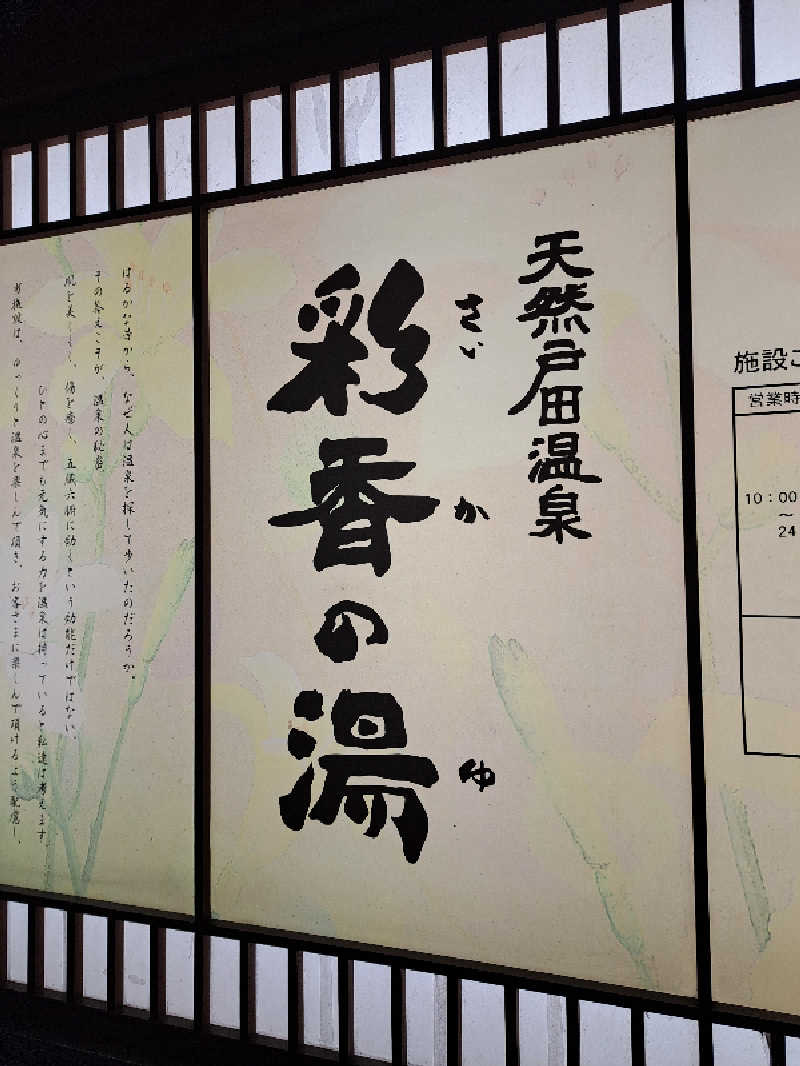 天然戸田温泉
彩香の湯
さい
か
ゆ
はるかな昔から、なぜ人は温泉を探して歩いたのだろうか。
その答えこそが、温泉の秘密。
肌を美しく、傷を癒し、五臓六腑に効くという効能だけではない、
ひとの心までも元気にする力を温泉は持っていると私達は考えます。
ゆっくりと温泉を楽しんで頂き、お客さまに楽しんで頂けるよう配慮し、
施設
営業時
10:00
～
24